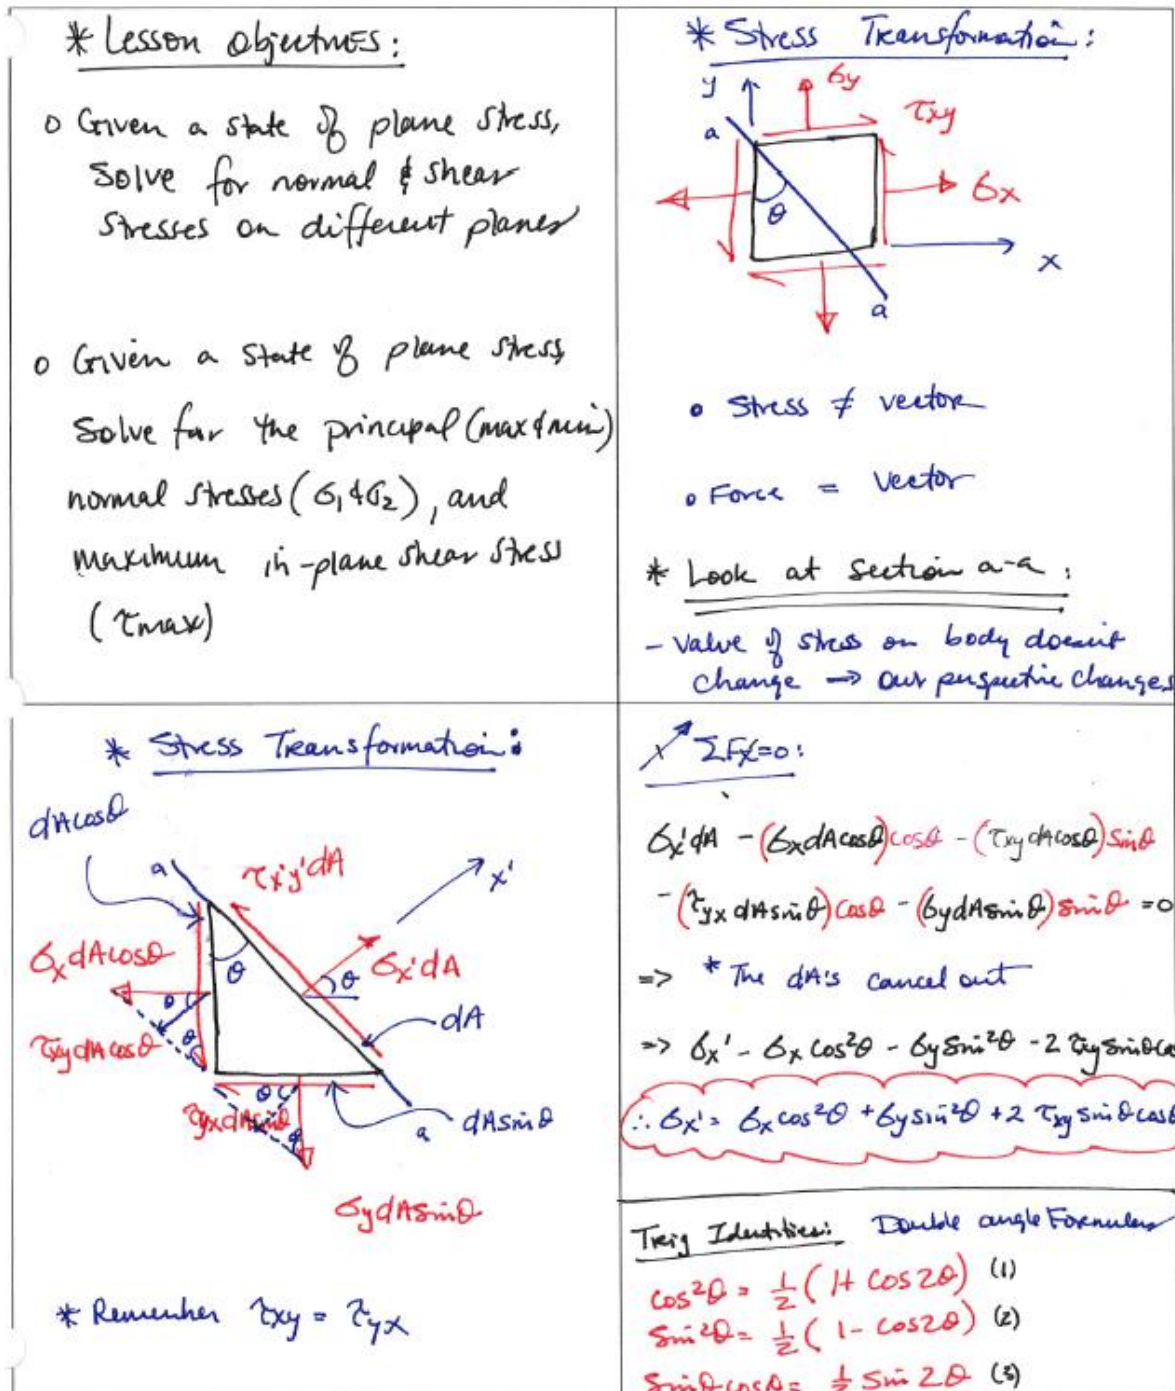 * Lesson objectives:
o Given a state of plane stress,
solve for normal & shear
stresses on different planes
o Given a state of plane stress,
solve for the principal (max & min)
normal stresses (σ₁ & σ₂), and
maximum in-plane shear stress
(τmax)
* Stress Transformation:
y
σy
τxy
a
σx
θ
x
a
• Stress ≠ vector
• Force = Vector
* Look at section a-a:
- value of stress on body doesn't
change → our perspective changes
* Stress Transformation:
dAcosθ
a
τx'y'dA
x'
θ
σx dAcosθ
σx'dA
θ
θ
dA
θ
τxy dAcosθ
θ
τyx dAsinθ
a
dAsinθ
θ
σy dAsinθ
* Remember τxy = τyx
ΣFx'=0:
σx'dA - (σx dAcosθ)cosθ - (τxy dAcosθ)sinθ
- (τyx dAsinθ)cosθ - (σy dAsinθ)sinθ = 0
=> * The dA's cancel out
=> σx' - σx cos²θ - σy sin²θ - 2 τxy sinθco
∴ σx' = σx cos²θ + σy sin²θ + 2 τxy sinθcosθ
Trig Identities: Double angle Formulas
cos²θ = ½ (1+ cos2θ) (1)
sin²θ = ½ (1- cos2θ) (2)
sinθcosθ = ½ sin 2θ (3)